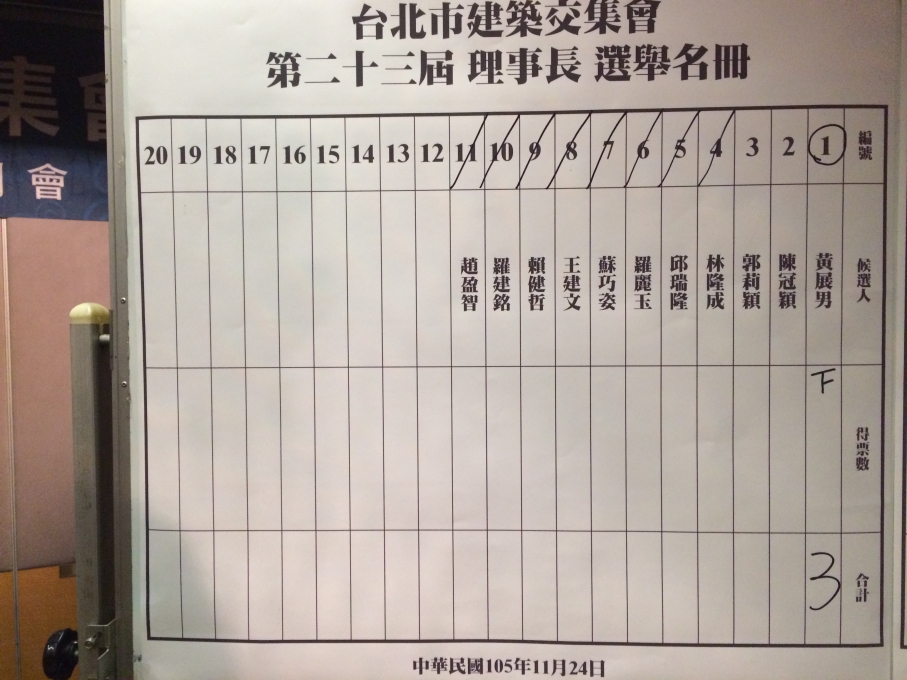 台北市建築交集會
第二十三屆 理事長 選舉名冊
20 19 18 17 16 15 14 13 12 11 10 9 8 7 6 5 4 3 2 1 編號
候選人
黃展男
陳冠穎
郭莉穎
林隆成
邱瑞隆
羅麗玉
蘇巧姿
王建文
賴健哲
羅建銘
趙盈智
得票數
下
合計
3
中華民國105年11月24日
集會
會